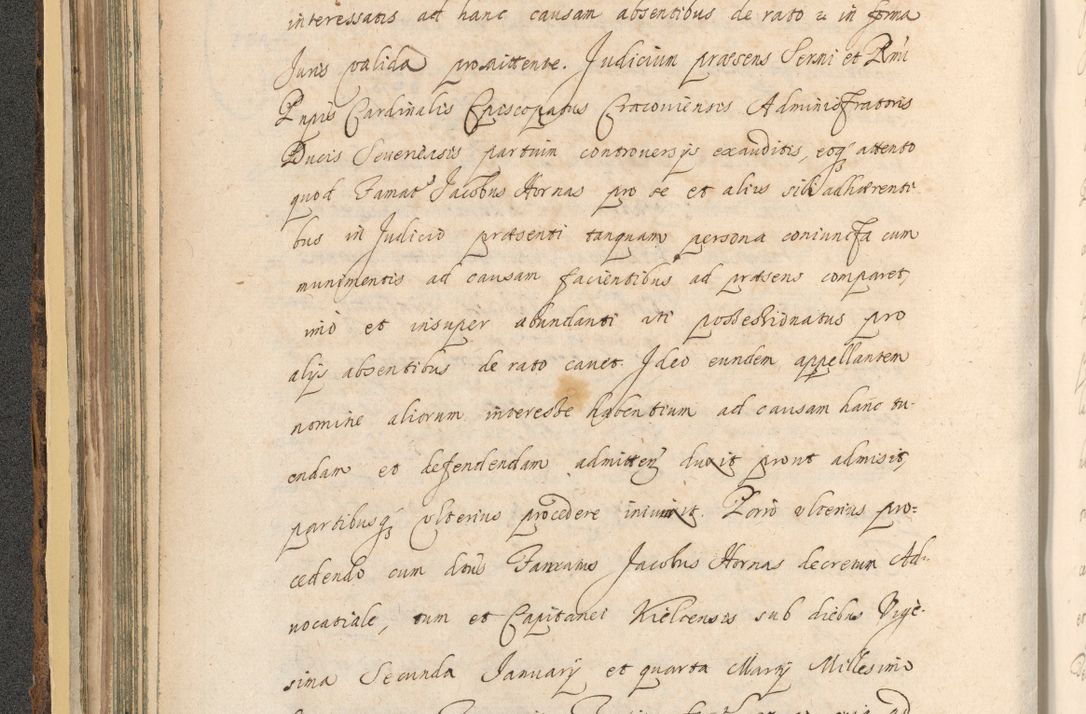 interessatis ad hanc causam absentibus de rato & in forma
Juris valida promittente. Judicium præsens Serni et Rmi
Pnpis Cardinalis Episcopatus Cracoviensis Administratoris
Ducis Severiæsis partium controversijs exauditis, eoq attento
quod Famat' Jacobus Hornas pro se et alius sibi adhærenti
bus in Judicio præsenti tanquam persona coniuncta cum
munimentis ad causam facientibus ad præsens comparet,
imò et insuper abundanti uti possessionatus pro
alijs absentibus de rato cavet. Ideo eundem appellantem
nomine aliorum interesse habentium ad causam hanc tu-
endam et defendendam admitten duxit prout admisit,
partibusq ulterius procedere iniunxit. Porrò ulterius pro=
cedendo cum dons Famatus Jacobus Hornas decretum Ad-
vocatiale, tum et Capitanei Kielcensis sub diebus Vige-
sima Secunda Januarij et quarta Martij Millesimo